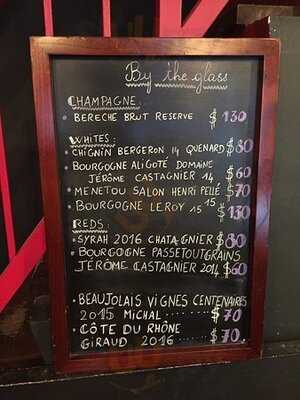 By the glass
CHAMPAGNE:
• BERECHE BRUT RESERVE $130
WHITES:
• CHIGNIN BERGERON 14 QUENARD $80
• BOURGOGNE ALIGOTÉ DOMAINE
JÉRÔME CASTAGNIER 14 $60
• MENETOU SALON HENRI PELLÉ $70
• BOURGOGNE LEROY 15 15 $130
REDS:
• SYRAH 2016 CHATAGNIER $80
• BOURGOGNE PASSETOUTGRAINS
JÉRÔME CASTAGNIER 2014 $60
• BEAUJOLAIS VIGNES CENTENAIRES
2015 MICHAL ...... $70
• CÔTE DU RHÔNE
GIRAUD 2016 ...... $70